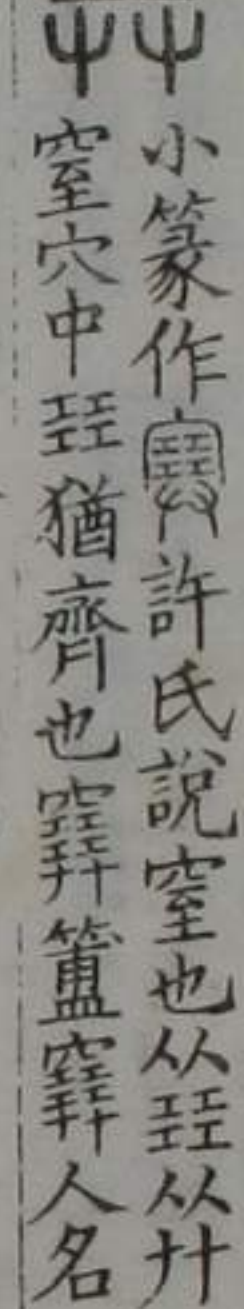 屮小篆作𡫳許氏說窒也从㠭从廾
屮窒穴中㠭猶齊也𡨄簠𡨄人名